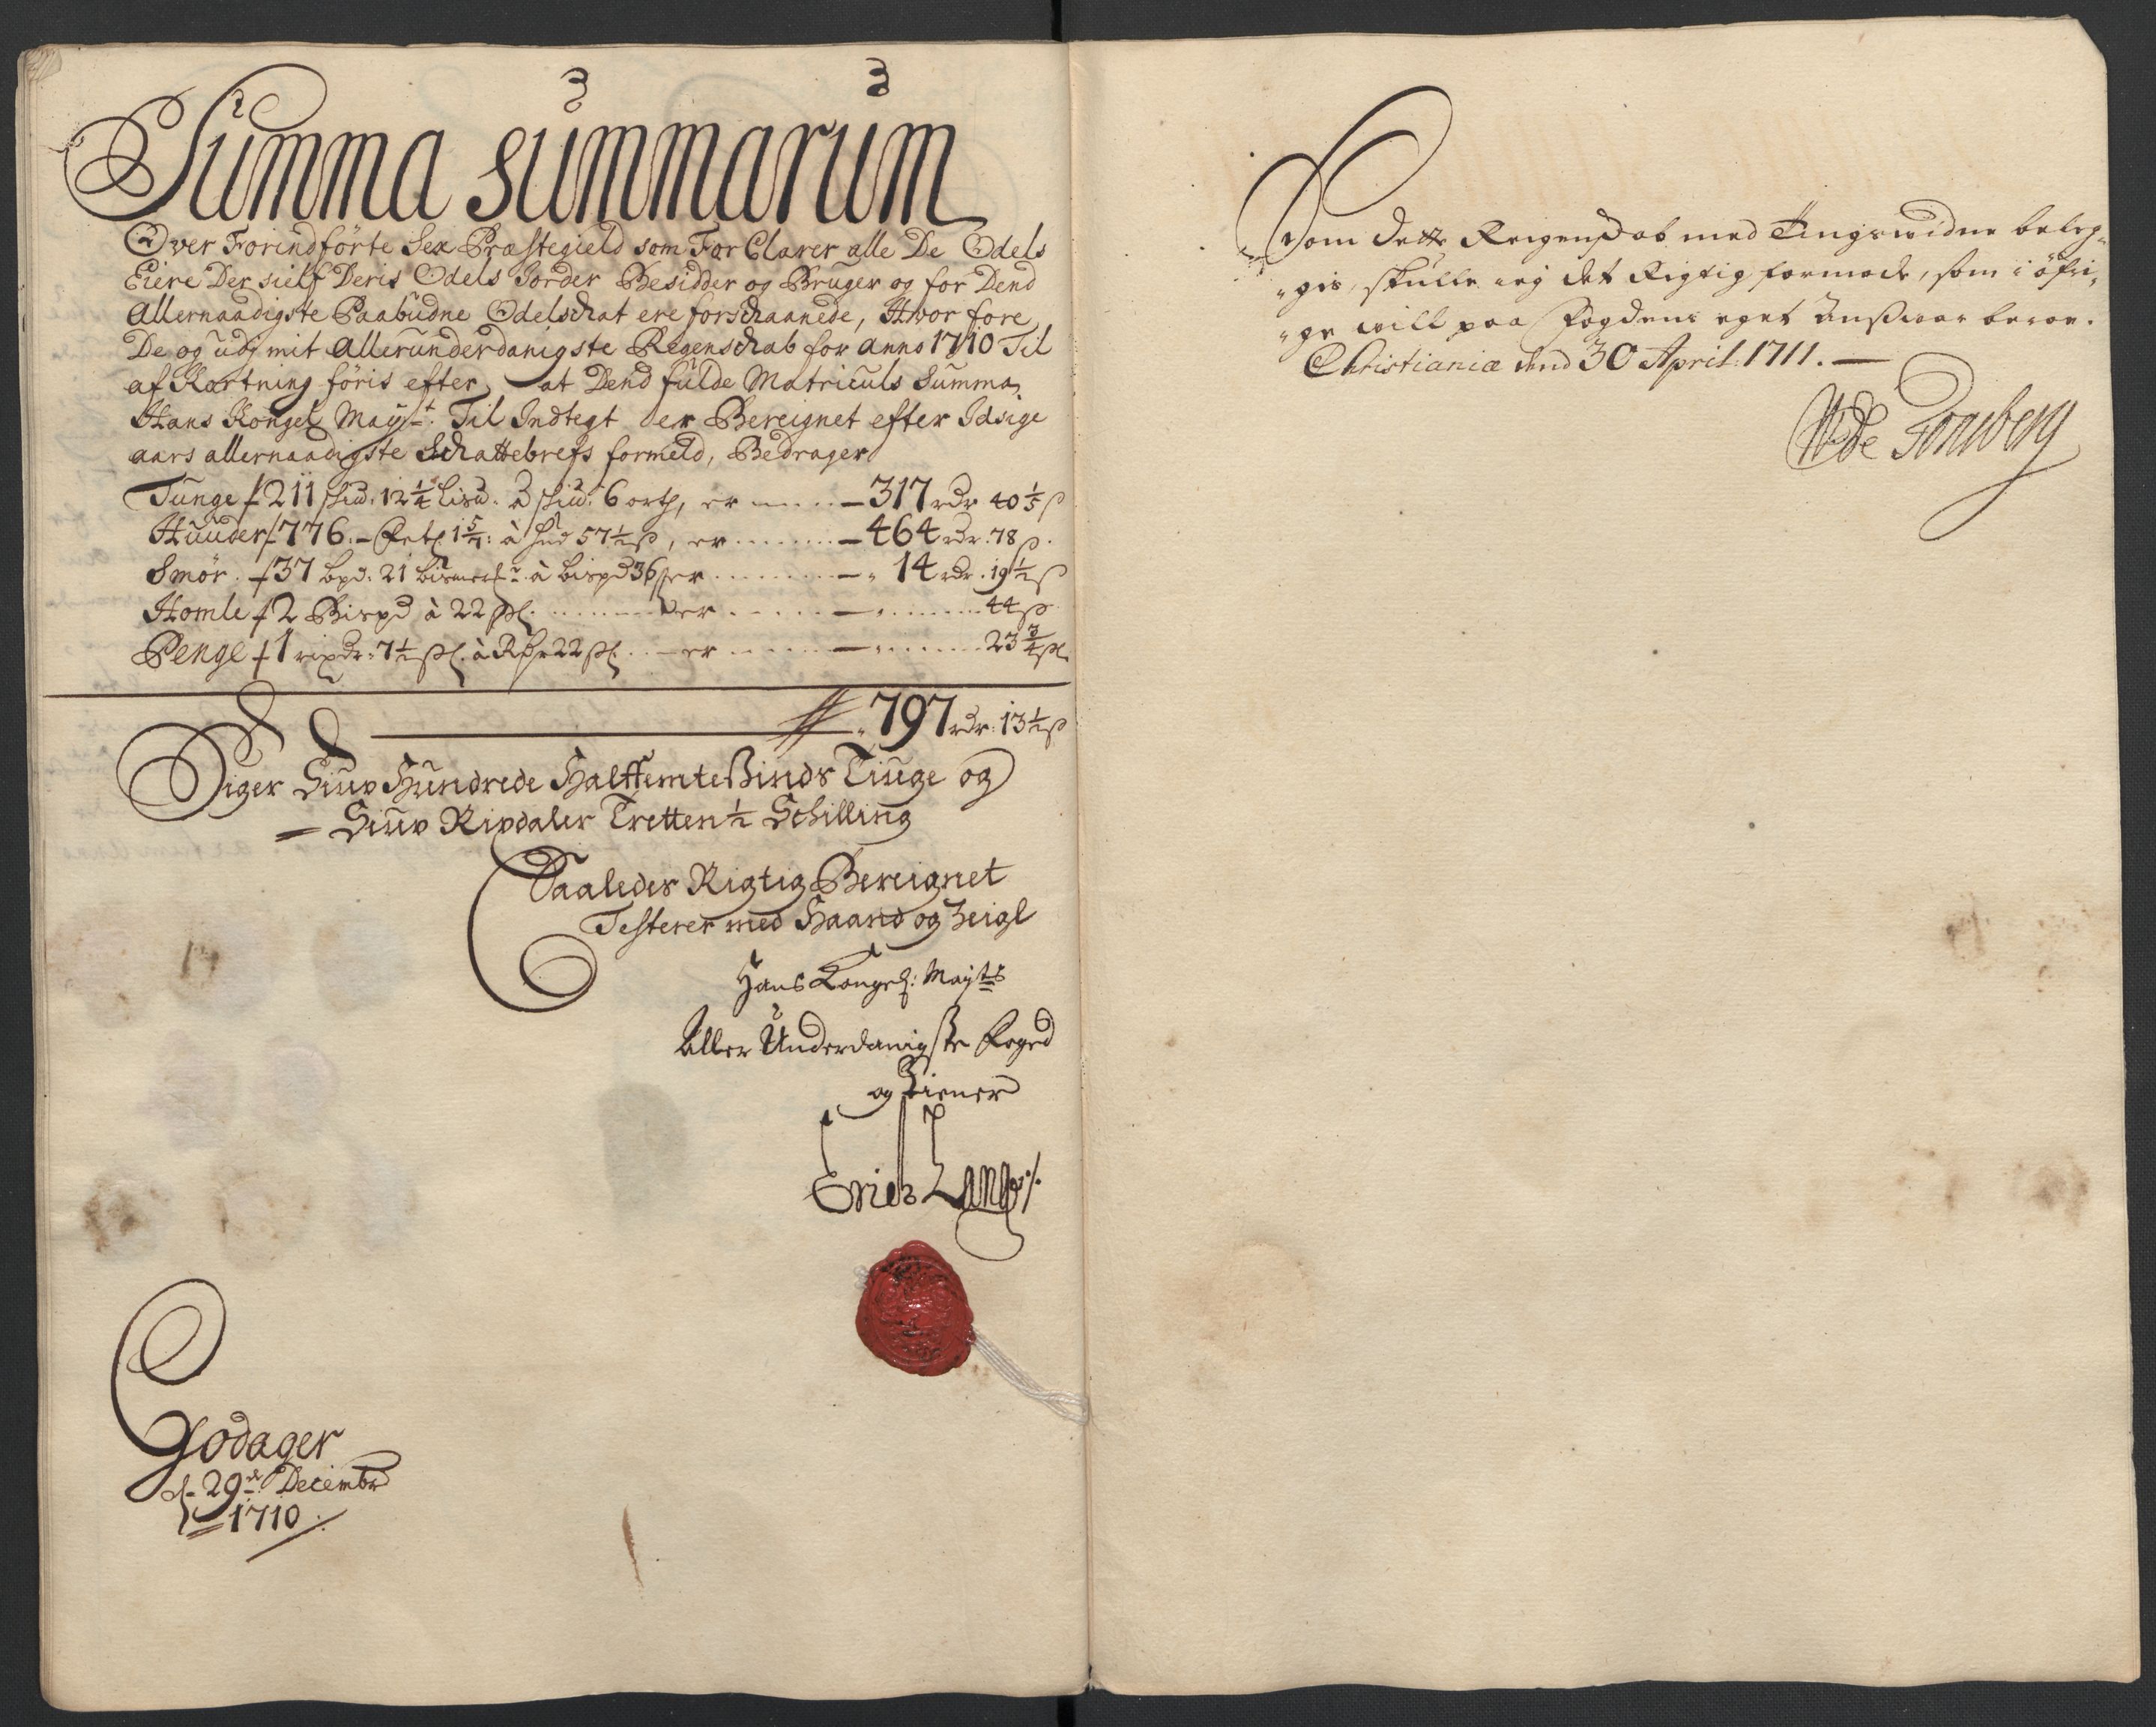 Summa summarum
Over Forindførte Sex Præstegield som For Clarer alle De Odels
Eiere Der sielf Deris Odels Jorder Besidder og Bruger og for Dend
Allernaadigste Paabudne Odelschat ere forschaanede, Hvor fore
De og udj mit Allerunderdanigste Regenschab for anno 1710 Til
af Kortning føris efter at Dend fulde Matriculs Summa
Hans Kongel Mayt. Til Indtegt der Bereignet efter Idsige
aars allernaadigste Schattebrefs formeld, Bedrager
Tunge 211 skud. 12 1/4 lisd. à skud. 6 ort, er — 317 rdr 40 1/5 ß
Huuder 776. - 1 5/7: à hud 57 1/2 ß, er — 464 rdr. 78 ß.
Smør. 37 bpd. 21 bismerk à bispd 36 ß er — 14 rdr. 19 1/2 ß
Homle 2 Bispd à 22 ßl. er — 44 ß
Penge 1 rixdr. 7 1/2 ßl. à Rdr 22 ßl. er — 23 3/4 ßl.
797 rdr. 13 1/2 ß
Siger Siuv Hundrede Halffemte Sinds Tiuge og
Siuv Rixdaler Tretten 1/2 Schilling
Saaledes Rigtig Bereignet
Testerer med Haand og Zeigl
Hans Kongel: Mayts
Aller Underdanigste Foged
og Tiener
Erich Lange
Godager
d. 29de Decembr
1710.
Som dette Reigenskab med Tingswidne beleg-
gis, skulle ieg det Rigtig formode, som i öfri-
ge will paa fogdens eget Answar beroe.
Christiania dend 30 April. 1711.
W de Tonsberg